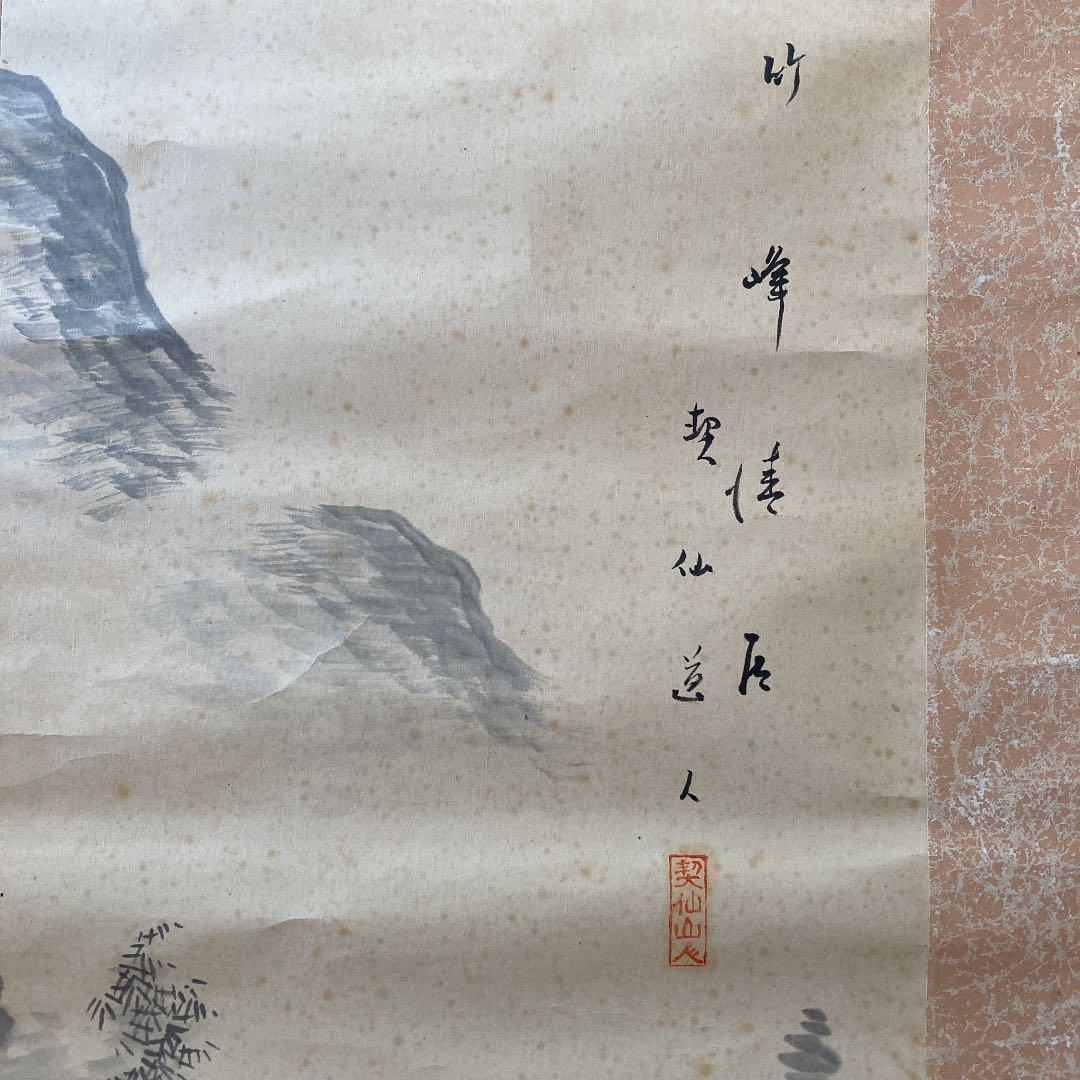 竹峰清居
契仙道人
契仙山人